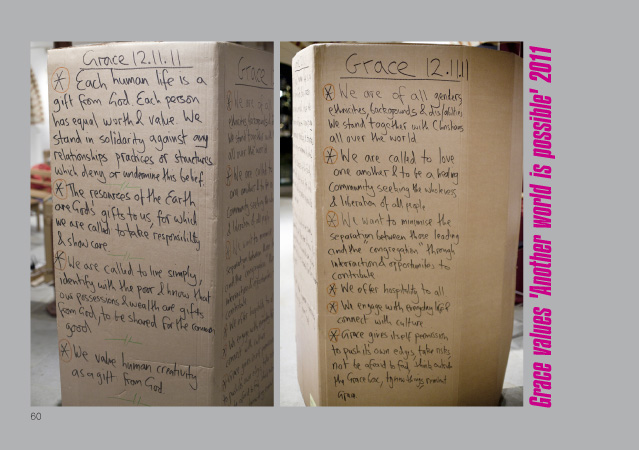 Grace 12.11.11
* Each human life is a
gift from God. Each person
has equal worth & value. We
stand in solidarity against any
relationships practices or structures
which deny or undermine this belief.
* The resources of the Earth
are Gods' gifts to us, for which
we are called to take responsibility
& show care
* We are called to live simply,
identify with the poor & know that
our possessions & wealth are gifts
from God, to be shared for the common
good
* We value human creativity
as a gift from God.
Grace
Grace 12.11.11
* We are of all genders
ethnicities, backgrounds & dis/abilities
We stand together with Christians
all over the world
* We are called to love
one another & to be a healing
community seeking the wholeness
& liberation of all people
* We want to minimise the
separation between those leading
and the "congregation" through
interaction & opportunities to
contribute
* We offer hospitality to all
* We engage with everyday life &
connect with culture
* Grace gives itself permission
to push its own edges, take risks,
not be afraid to fail,
the Grace box,
Grace
Grace values 'Another world is possible' 2011
60